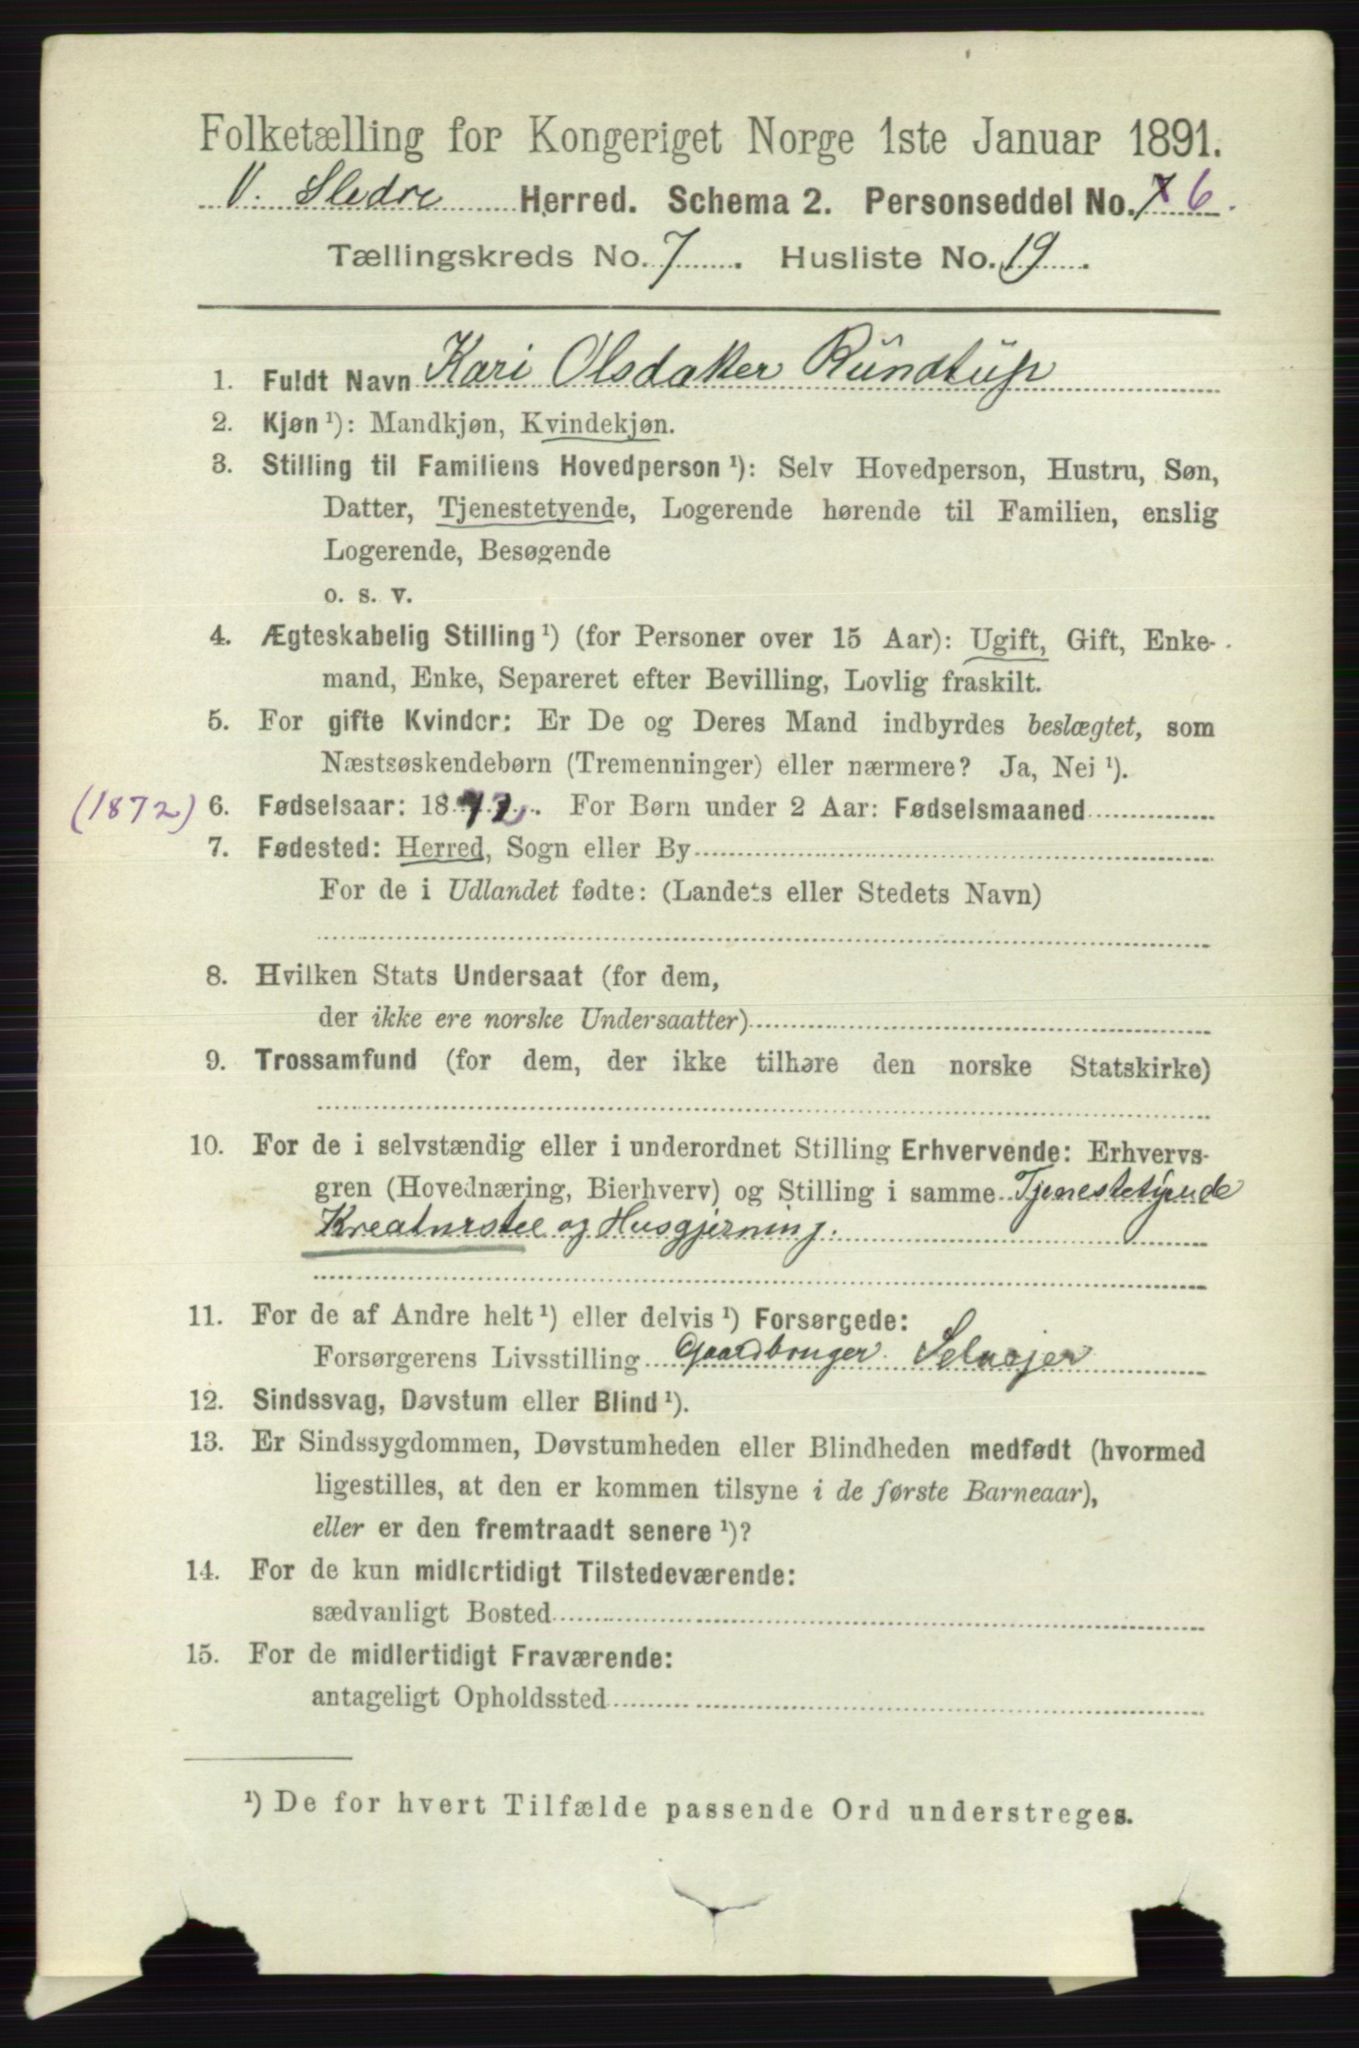 Folketælling for Kongeriget Norge 1ste Januar 1891.
V. Slidre Herred. Schema 2. Personseddel No. 7 6.
Tællingskreds No. 7. Husliste No. 19.
1. Fuldt Navn Kari Olsdatter Rundtup
2. Kjøn ¹): Mandkjøn, Kvindekjøn.
3. Stilling til Familiens Hovedperson ¹): Selv Hovedperson, Hustru, Søn,
Datter, Tjenestetyende, Logerende hørende til Familien, enslig
Logerende, Besøgende
o. s. v.
4. Ægteskabelig Stilling ¹) (for Personer over 15 Aar): Ugift, Gift, Enke-
mand, Enke, Separeret efter Bevilling, Lovlig fraskilt.
5. For gifte Kvinder: Er De og Deres Mand indbyrdes beslægtet, som
Næstsøskendebørn (Tremenninger) eller nærmere? Ja, Nei ¹).
(1872) 6. Fødselsaar: 1872. For Børn under 2 Aar: Fødselsmaaned
7. Fødested: Herred, Sogn eller By
For de i Udlandet fødte: (Landets eller Stedets Navn)
8. Hvilken Stats Undersaat (for dem,
der ikke ere norske Undersaatter)
9. Trossamfund (for dem, der ikke tilhøre den norske Statskirke)
10. For de i selvstændig eller i underordnet Stilling Erhvervende: Erhvervs-
gren (Hovednæring, Bierhverv) og Stilling i samme Tjenestetyende
Kreaturstel og Husgjerning.
11. For de af Andre helt ¹) eller delvis ¹) Forsørgede:
Forsørgerens Livsstilling Gaardbruger Selvejer
12. Sindssvag, Døvstum eller Blind ¹).
13. Er Sindssygdommen, Døvstumheden eller Blindheden medfødt (hvormed
ligestilles, at den er kommen tilsyne i de første Barneaar),
eller er den fremtraadt senere ¹)?
14. For de kun midlertidigt Tilstedeværende:
sædvanligt Bosted
15. For de midlertidigt Fraværende:
antageligt Opholdssted
¹) De for hvert Tilfælde passende Ord understreges.